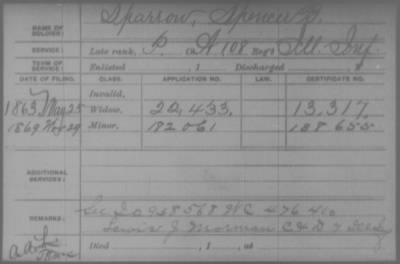 NAME OF SOLDIER: Sparrow, Spencer P.
SERVICE: Late rank, P. Co. A, 108 Reg't Ill. Inf.
TERM OF SERVICE: Enlisted , 1 Discharged , 1
DATE OF FILING. CLASS. APPLICATION NO. LAW. CERTIFICATE NO.
Invalid,
1863, May 25 Widow, 22,433. 13,317.
1869 Nov 29 Minor, 182 061 138 655
ADDITIONAL SERVICES:
REMARKS: See I.O 958568 W.C 476 410
Lewis J. Morman C
Died , 1 , at